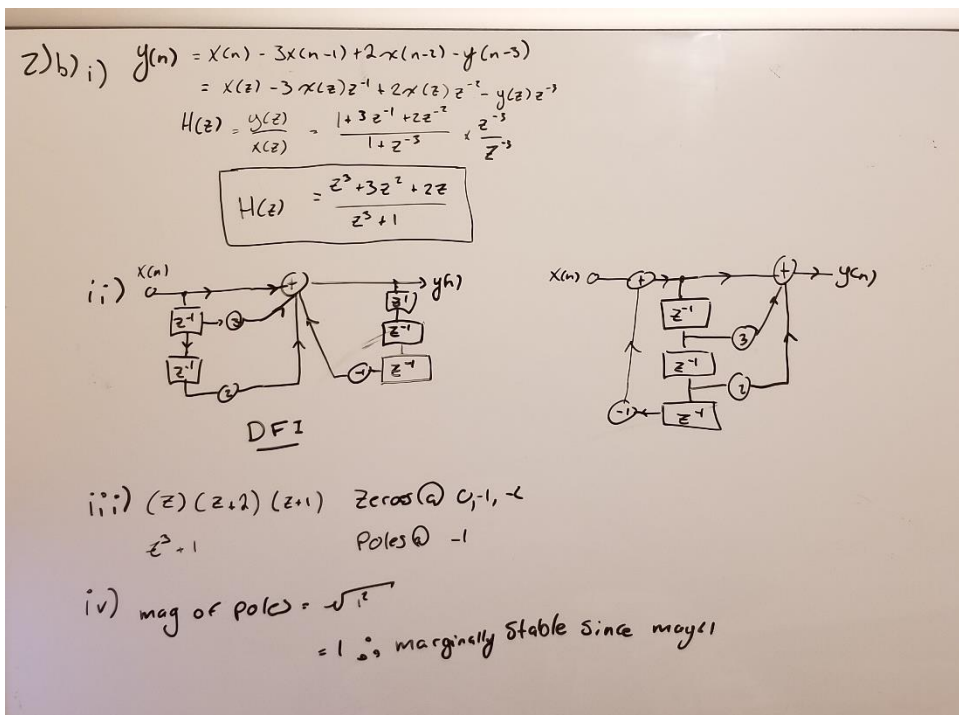 2) b) i) y(n) = x(n) - 3x(n-1) + 2x(n-2) - y(n-3)
= x(z) - 3x(z)z⁻¹ + 2x(z)z⁻² - y(z)z⁻³
H(z) = y(z)/x(z) = (1 + 3z⁻¹ + 2z⁻²)/(1 + z⁻³) × z⁻³/z⁻³
H(z) = (z³ + 3z² + 2z)/(z³ + 1)
ii) x(n) + y(n) x(n) + + y(n)
z⁻¹ z⁻¹ z⁻¹
z⁻¹ z⁻¹ 3
z⁻¹ 2 -1 z⁻¹ z⁻¹ 2
-1 z⁻¹
DFI
iii) (z)(z+2)(z+1) Zeros @ 0, -1, -2
z³ + 1 Poles @ -1
iv) mag of poles = √1²
= 1 ∴ marginally stable since